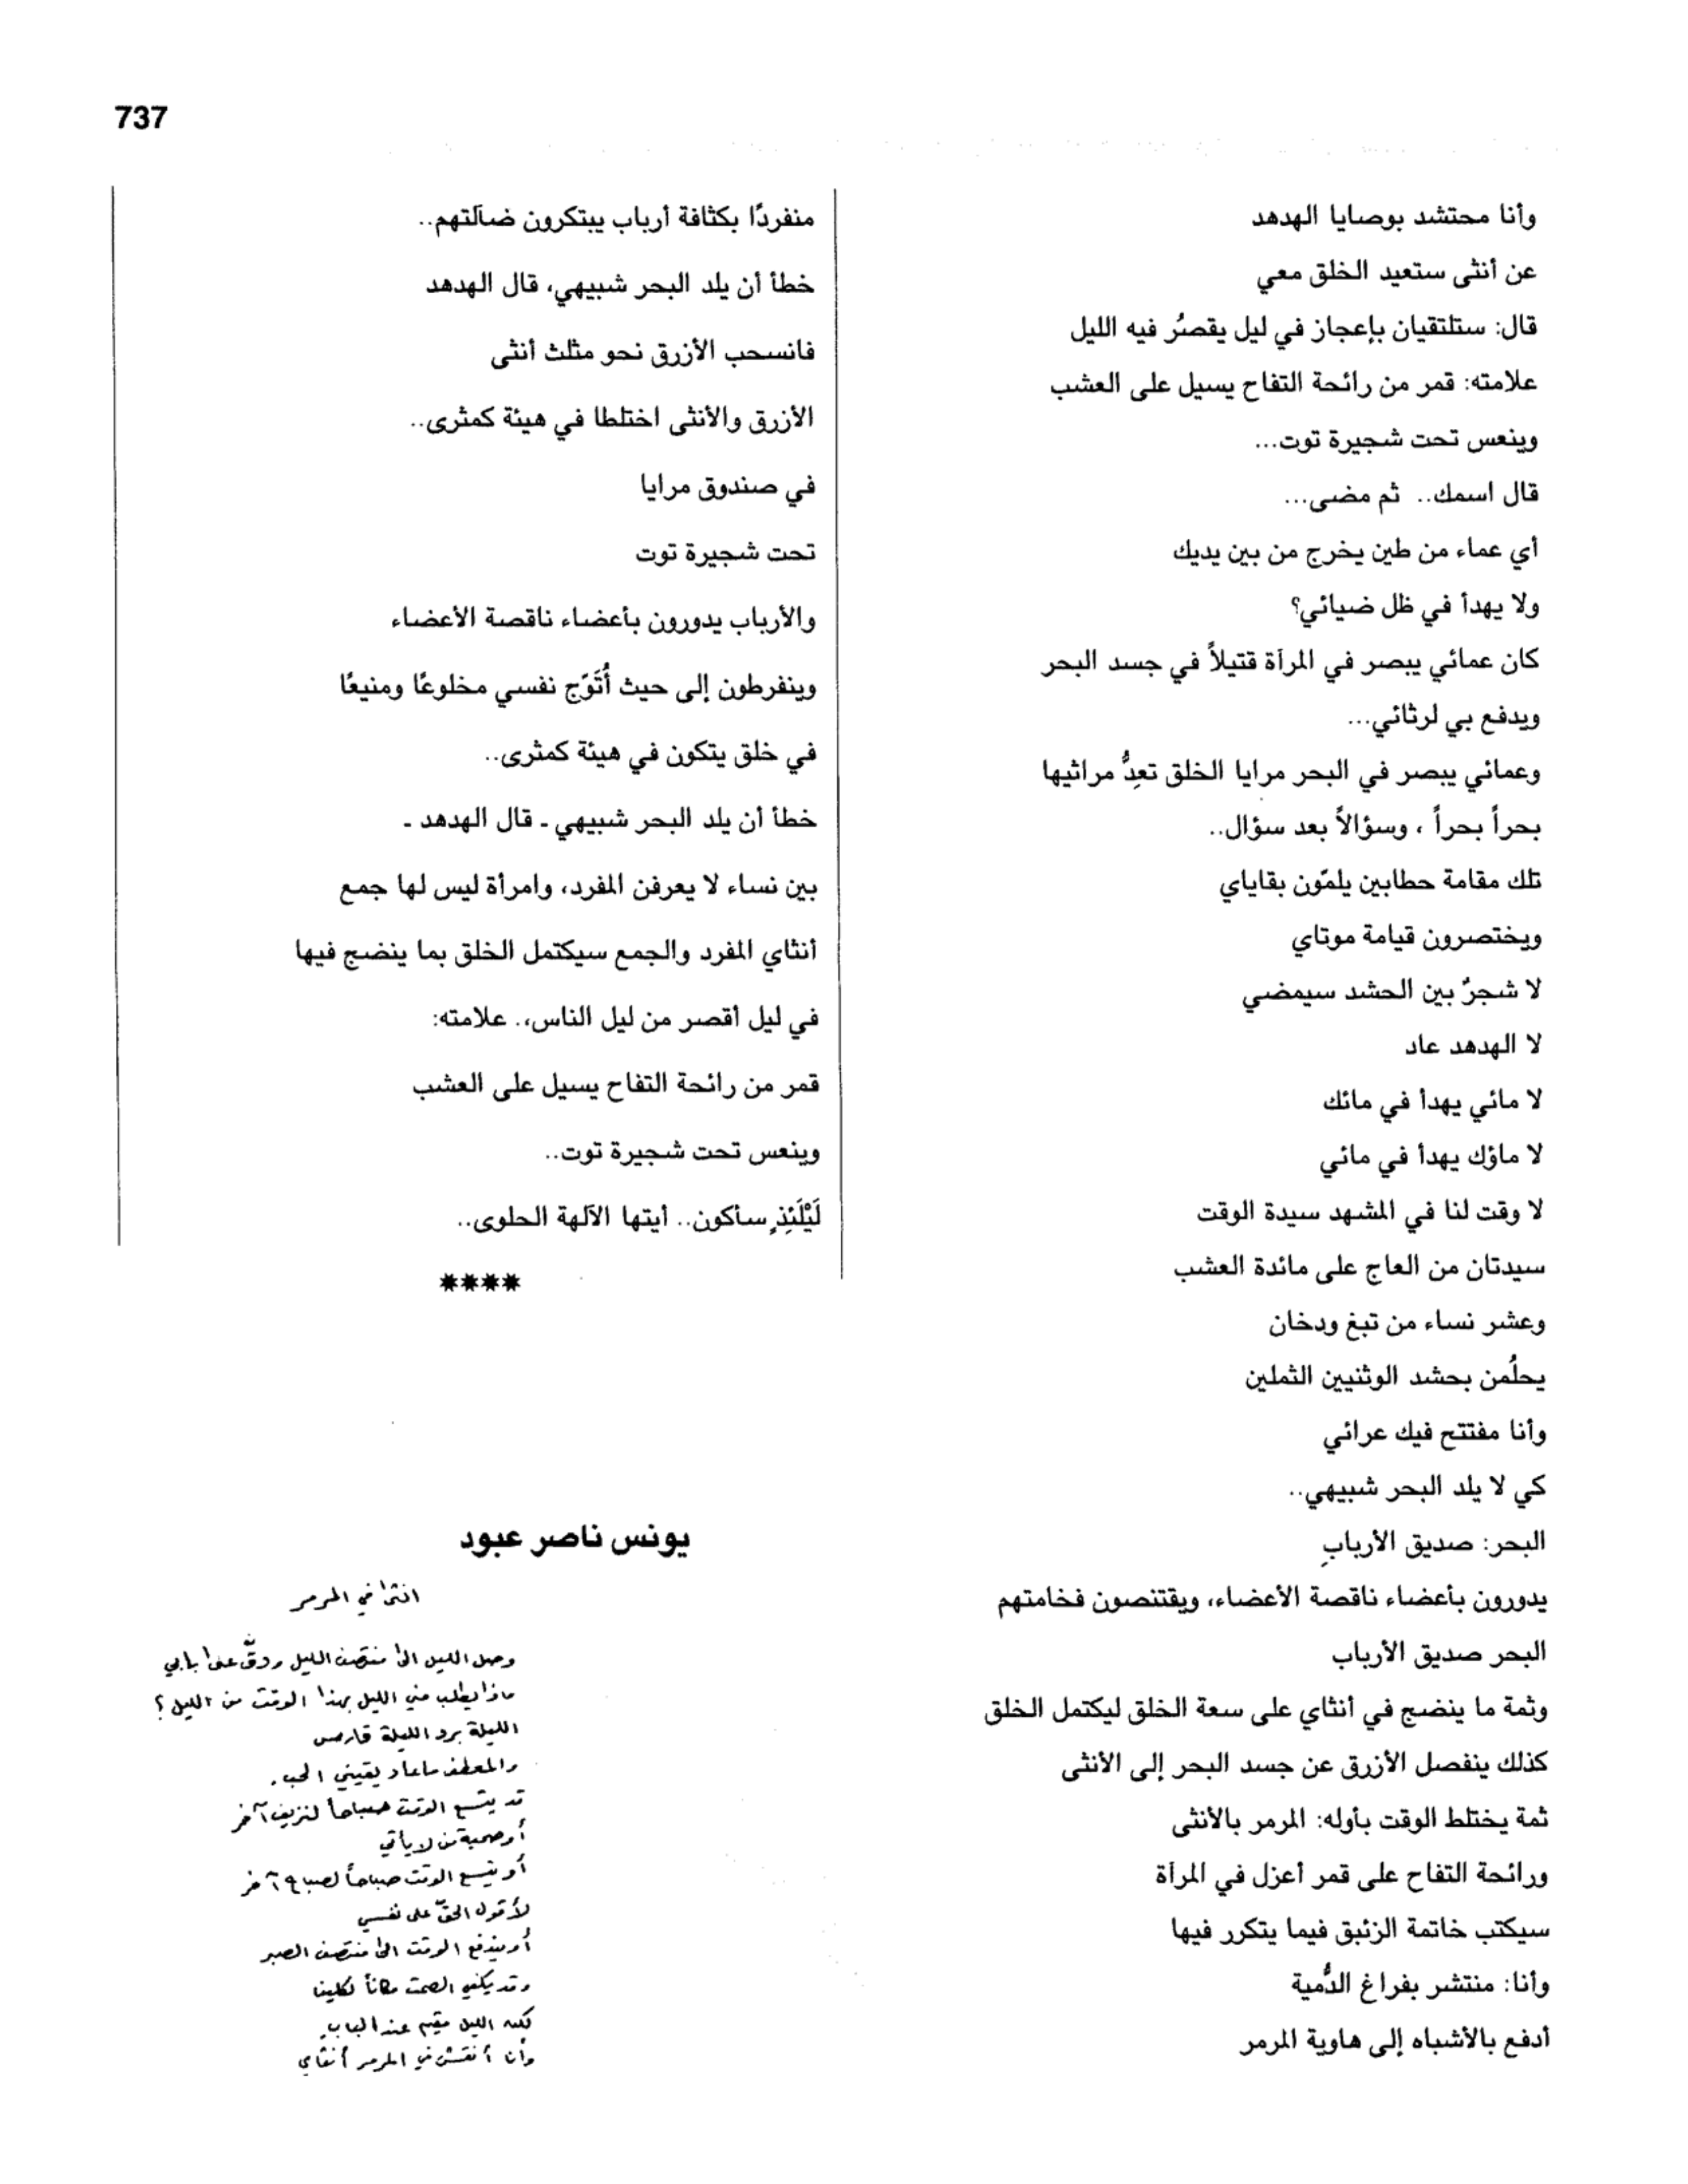 737
وأنا محتشد بوصايا الهدهد
عن أنثى ستعيد الخلق معي
قال: ستلتقيان بإعجاز في ليل يقصُر فيه الليل
علامته: قمر من رائحة التفاح يسيل على العشب
وينعس تحت شجيرة توت...
قال اسمك.. ثم مضى...
أي عماء من طين يخرج من بين يديك
ولا يهدأ في ظل ضيائي؟
كان عمائي يبصر في المرآة قتيلاً في جسد البحر
ويدفع بي لرثائي...
وعمائي يبصر في البحر مرايا الخلق تعِدُّ مراثيها
بحراً بحراً ، وسؤالاً بعد سؤال..
تلك مقامة حطابين يلمّون بقاياي
ويختصرون قيامة موتاي
لا شجرٌ بين الحشد سيمضي
لا الهدهد عاد
لا مائي يهدأ في مائك
لا ماؤك يهدأ في مائي
لا وقت لنا في المشهد سيدة الوقت
سيدتان من العاج على مائدة العشب
وعشر نساء من تبغ ودخان
يحلُمن بحشد الوثنيين الثملين
وأنا مفتتح فيك عرائي
كي لا يلد البحر شبيهي..
البحر: صديق الأربابِ
يدورون بأعضاء ناقصة الأعضاء، ويقتنصون فخامتهم
البحر صديق الأرباب
وثمة ما ينضج في أنثاي على سعة الخلق ليكتمل الخلق
كذلك ينفصل الأزرق عن جسد البحر إلى الأنثى
ثمة يختلط الوقت بأوله: المرمر بالأنثى
ورائحة التفاح على قمر أعزل في المرآة
سيكتب خاتمة الزئبق فيما يتكرر فيها
وأنا: منتشر بفراغ الدُّمية
أدفع بالأشباه إلى هاوية المرمر
منفردًا بكثافة أرباب يبتكرون ضآلتهم..
خطأ أن يلد البحر شبيهي، قال الهدهد
فانسحب الأزرق نحو مثلث أنثى
الأزرق والأنثى اختلطا في هيئة كمثرى..
في صندوق مرايا
تحت شجيرة توت
والأرباب يدورون بأعضاء ناقصة الأعضاء
وينفرطون إلى حيث أُتَوّج نفسي مخلوعًا ومنيعًا
في خلق يتكون في هيئة كمثرى..
خطأ أن يلد البحر شبيهي ـ قال الهدهد ـ
بين نساء لا يعرفن المفرد، وامرأة ليس لها جمع
أنثاي المفرد والجمع سيكتمل الخلق بما ينضج فيها
في ليل أقصر من ليل الناس،. علامته:
قمر من رائحة التفاح يسيل على العشب
وينعس تحت شجيرة توت..
لَيْلَئِذٍ سأكون.. أيتها الآلهة الحلوى..
****
يونس ناصر عبود
انثى في المرمر
وصل الليل الى منتصف الليل ودقّ على بابي
ماذا يطلب مني الليل بهذا الوقت من الليل ؟
الليلة برد الليلة قارص
والمعطف ماعاد يقيني الحب.
قد يتسع الوقت صباحاً لنزيف آخر
أو صحبة من لا يأتي
أو يتسع الوقت صباحاً لصباح آخر
لأقول الحقّ على نفسي
أو يندفع الوقت الى منتصف الصبر
وقد يكفي الصمت مكاناً لكلينا
لكن الليل مقيم عند الباب.
وأنا أنقش في المرمر أنثاي